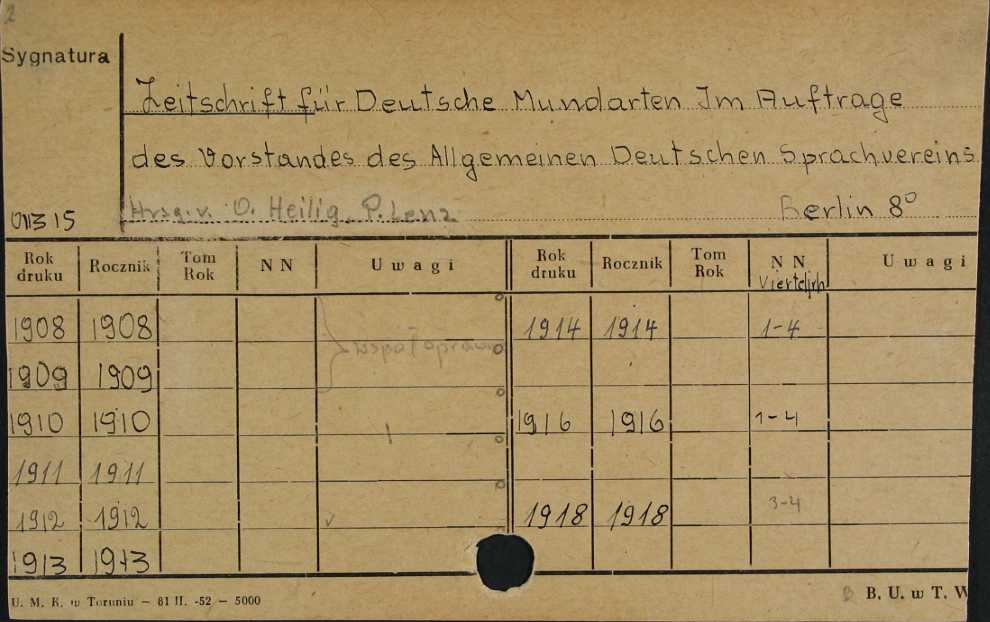 2
Sygnatura
Zeitschrift für Deutsche Mundarten Im Auftrage
des Vorstandes des Allgemeinen Deutschen Sprachvereins
Hrsg. v. O. Heilig, P. Lenz Berlin 8°
01315
Rok druku Rocznik Tom Rok N N Uwagi Rok druku Rocznik Tom Rok N N Uwagi
Vierteljrh
1908 1908 1914 1914 1-4
współopraw
1909 1909
1910 1910 1916 1916 1-4
1911 1911
1912 1912 1918 1918 3-4
1913 1913
U. M. K. w Toruniu — 81 II. -52 — 5000 B. U. w T. W